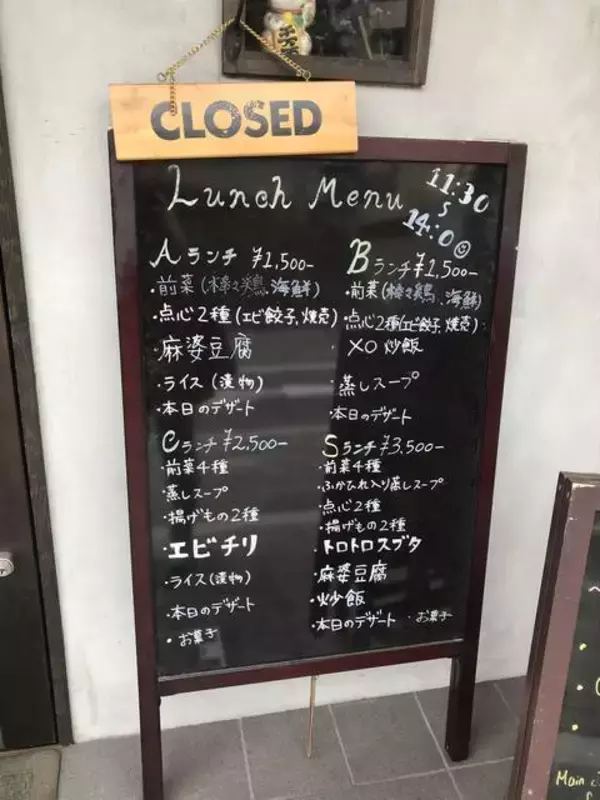 CLOSED
Lunch Menu
11:30
14:0
Aランチ ¥1,500-
・前菜(棒々鶏、海鮮)
・点心2種(エビ餃子、焼売)
・麻婆豆腐
・ライス(漬物)
・本日のデザート
Bランチ ¥1,500-
・前菜(棒々鶏、海鮮)
・点心2種(エビ餃子、焼売)
・XO炒飯
・蒸しスープ
・本日のデザート
Cランチ ¥2,500-
・前菜4種
・蒸しスープ
・揚げもの2種
・エビチリ
・ライス(漬物)
・本日のデザート
・お菓子
Sランチ ¥3,500-
・前菜4種
・ふかひれ入り蒸しスープ
・点心2種
・揚げもの2種
・トロトロスブタ
・麻婆豆腐
・炒飯
・本日のデザート ・お菓子
Main